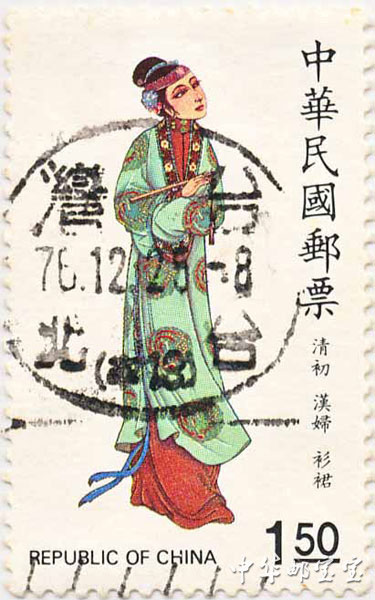 中華民國郵票
清初 漢婦 衫裙
台北
76.12.23-8
台灣
北
1.50
REPUBLIC OF CHINA
中华邮宝宝